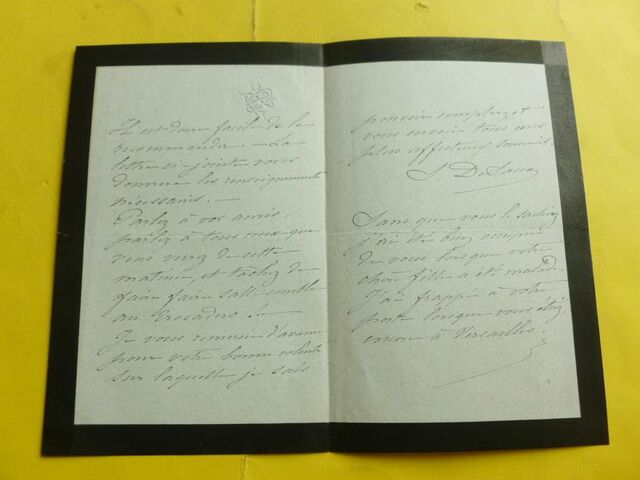 Il est donc facile de la
recommander. — La
lettre ci-jointe vous
donnera les renseignements
nécessaires. —
Parlez à vos amis,
parlez à tous ceux que
vous verrez de cette
matinée, et tâchez de
faire faire salle comble
au Trocadéro. —
Je vous remercie d'avance
pour votre bonne volonté
sur laquelle je sais
pouvoir compter, et
vous envoie tous mes
plus affectueux souvenirs.
J De Saux
Sans que vous le sachiez
j'ai été bien occupée
de vous lorsque votre
chère fille a été malade.
J'ai frappé à votre
porte lorsque vous étiez
encore à Versailles.